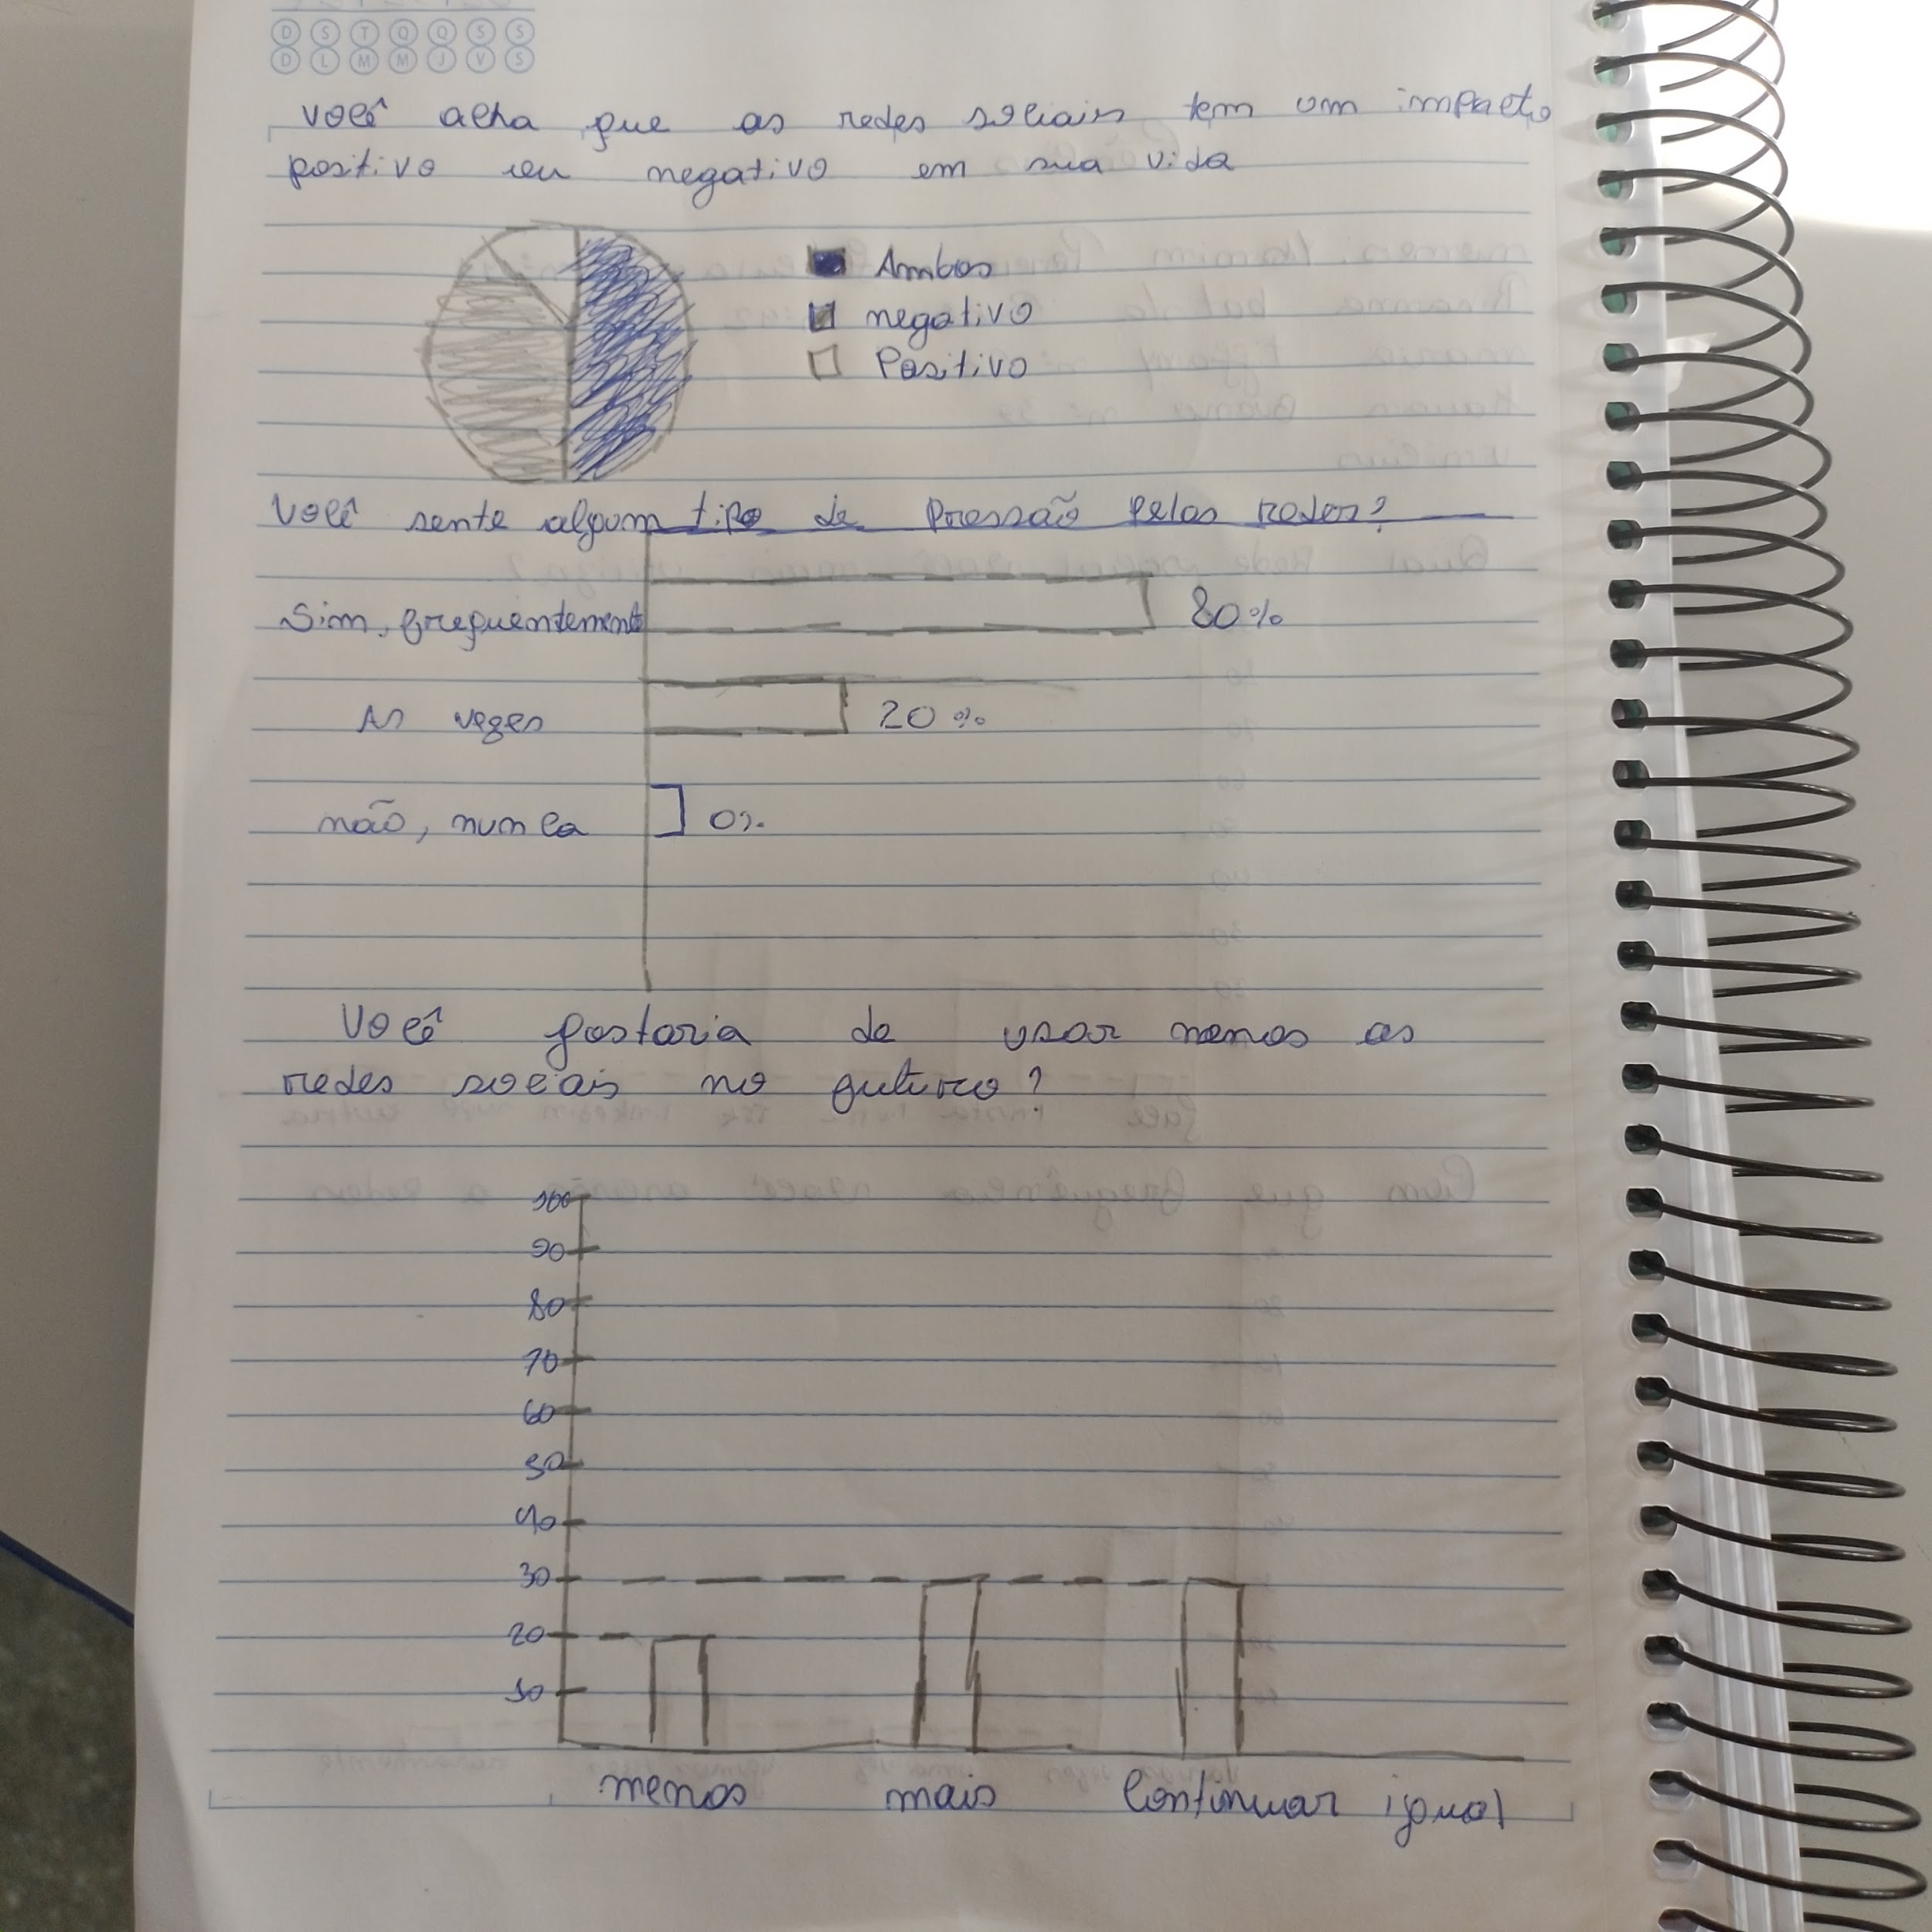 D S T Q Q S S
D L M M J V S
Você acha que as redes sociais tem um impacto
positivo ou negativo em sua vida
Ambos
negativo
Positivo
Você sente algum tipo de pressão pelas redes?
Sim, frequentemente 80%
As vezes 20%
não, nunca 0%
Você gostaria de usar menos as
redes sociais no futuro?
100
90
80
70
60
50
40
30
20
10
menos mais Continuar igual